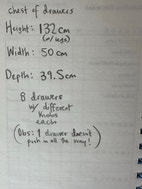 chest of drawers
Height: 132cm
(w/ legs)
Width: 50cm
Depth: 39.5cm
8 drawers
w/ different
knobs
each
(Obs: 1 drawer doesn't
push in all the way!)